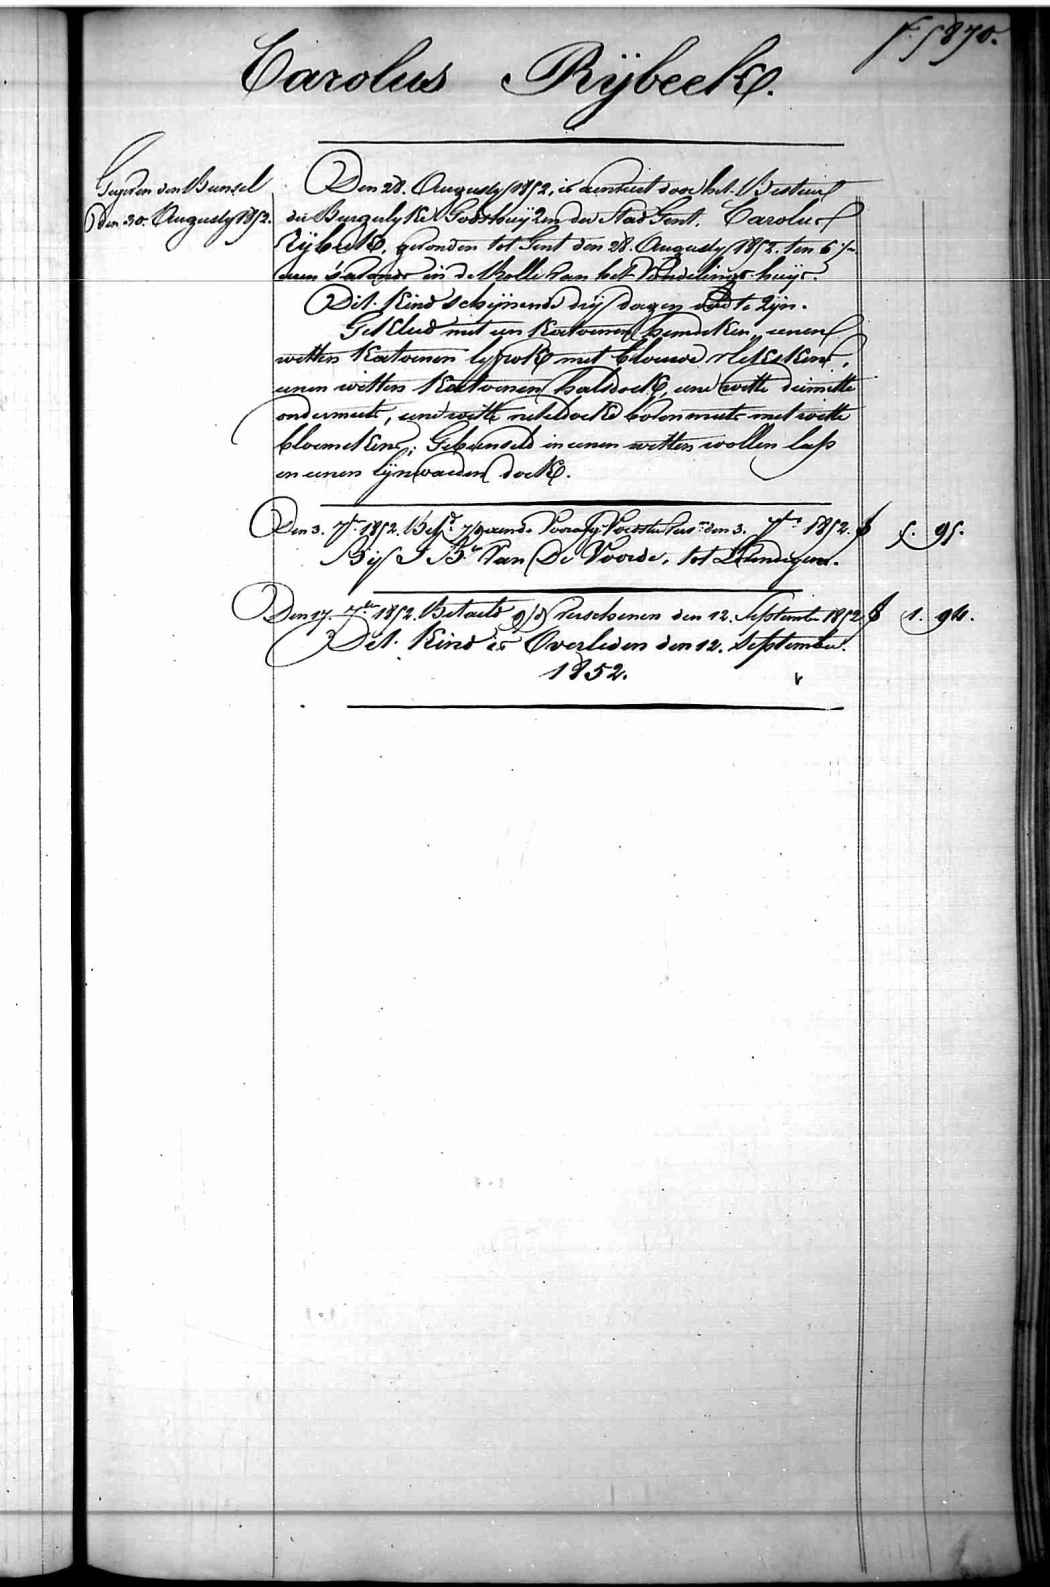 f. 5870.
Carolus Rÿbeek.
Gegeven den Bunsel
Den 30. Augusty 1852.
Den 28. Augusty 1852, is aenveert door het Bestuur
der Burgelyke Godshuyzen der Stad Gent. Carolus
Rÿbeek, gevonden tot Gent den 28. Augusty 1852. ten 6 ½
uren s'avonds in de Rolle van het Vondelings-huys.
Dit Kind schÿnende drÿ dagen oud te zÿn.
Gekleed met een Katoenen hemdeken, eenen
witten Katoenen lyfrok met blouwe vlekskens,
eenen witten Katoenen halsdoek, eene witte deimitte
ondermuts, eene witte neteldoeke bovenmuts met witte
bloemekens; Gebunseld in eenen witten wollen laps
en eenen lÿnwaeden doek.
Den 3. 7ber 1852. Bet. den 3. 7ber 1852. f 5. 95.
Bÿ J. Bte Van De Voorde, tot
Den 17. 7ber 1852. Betaeld verschenen den 12. September 1852 f 1. 94.
Dit Kind is Overleden den 12. September.
1852.